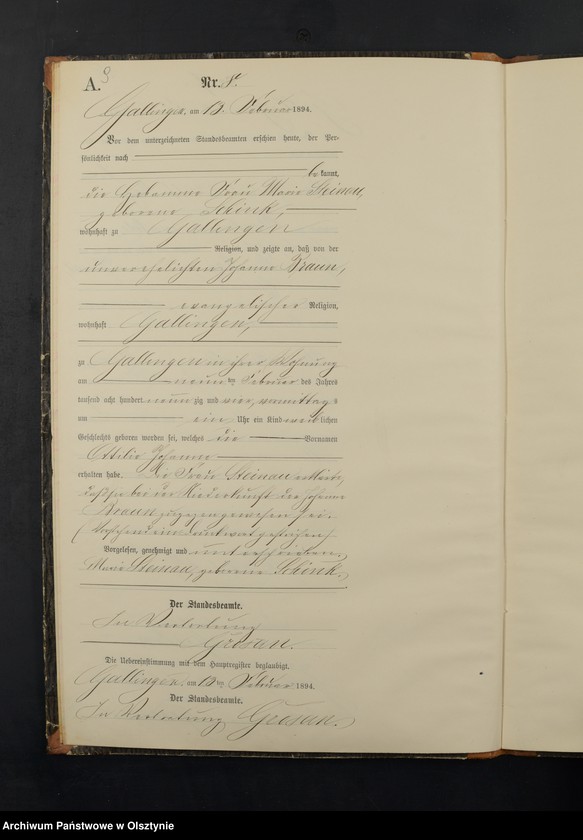 A. 9
Nr. 8.
Gallingen, am 13. Februar 1894.
Vor dem unterzeichneten Standesbeamten erschien heute, der Per-
sönlichkeit nach
bekannt,
die Hebamme Frau Marie Steinau,
geborene Schink,
wohnhaft zu Gallingen
Religion, und zeigte an, daß von der
unverehelichten Johanne Braun,
evangelischer Religion,
wohnhaft Gallingen,
zu Gallingen in ihrer Wohnung
am neunten Februar des Jahres
tausend acht hundert neunzig und vier, vormittags
um ein Uhr ein Kind weiblichen
Geschlechts geboren worden sei, welches die Vornamen
Ottilie Johanne
erhalten habe. Die Frau Steinau erklärte,
daß sie bei der Niederkunft der Johanne
Braun zugegen gewesen sei.
Vorstehend ein gestrichen
Vorgelesen, genehmigt und unterschrieben
Marie Steinau, geborene Schink.
Der Standesbeamte.
In Vertretung
Grosan.
Die Uebereinstimmung mit dem Hauptregister beglaubigt.
Gallingen, am 13ten Februar 1894.
Der Standesbeamte.
In Vertretung Grosan.
Archiwum Państwowe w Olsztynie